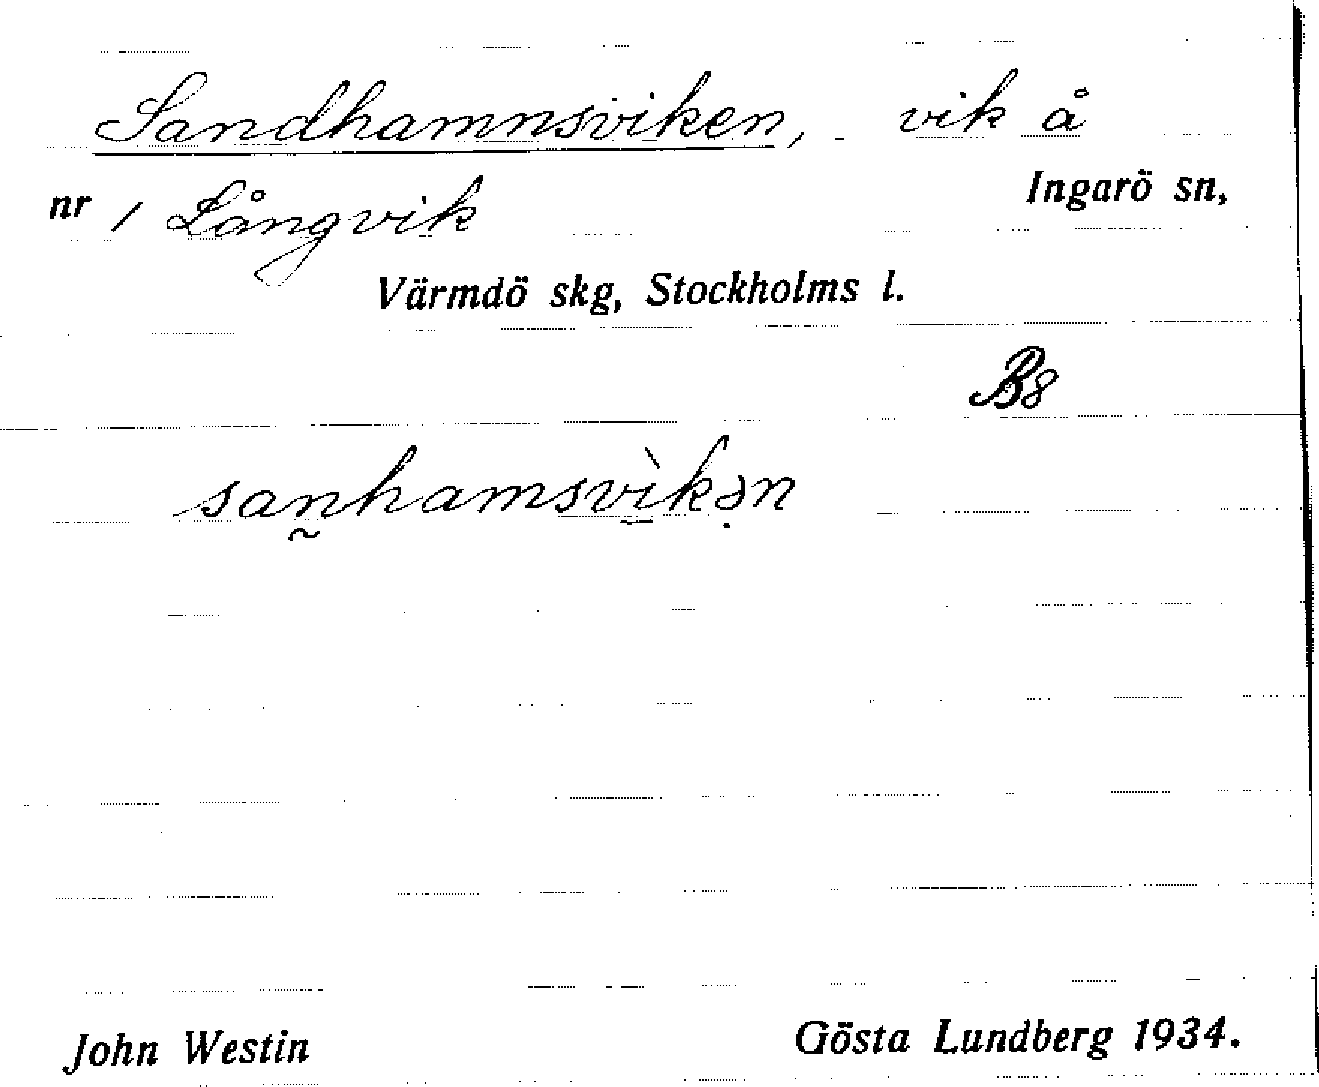 Sandhamnsviken, vik å
nr 1 Långvik Ingarö sn,
Värmdö skg, Stockholms l.
B8
sa̰nhamsvìkə̣n
John Westin Gösta Lundberg 1934.